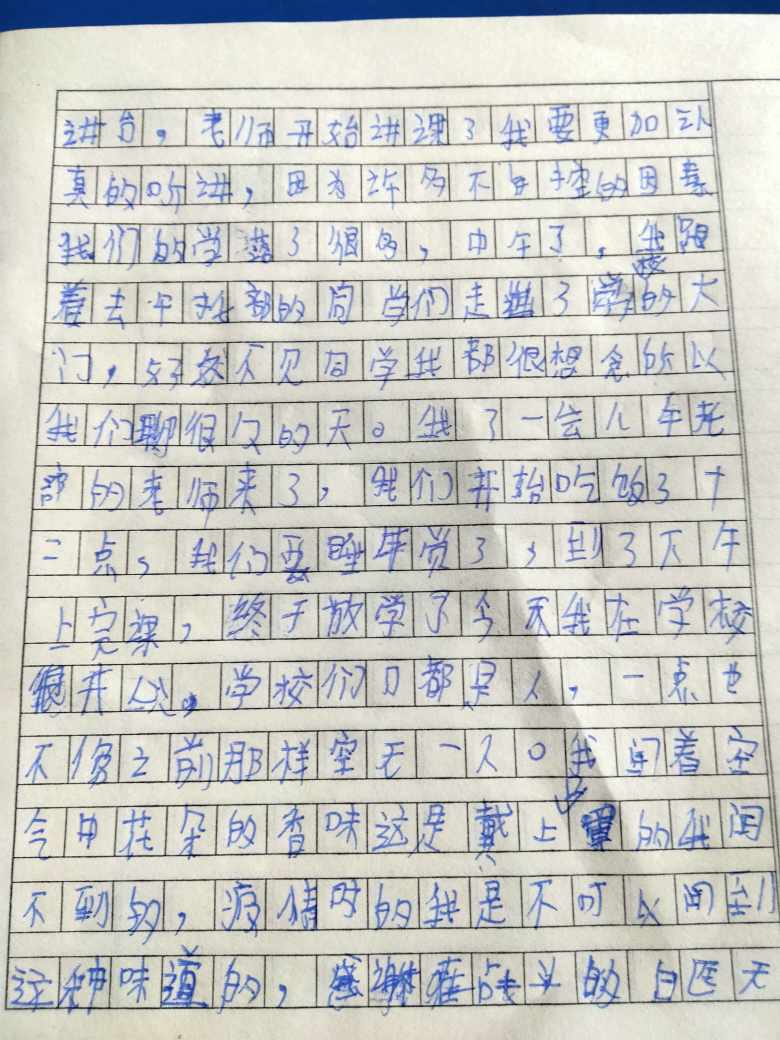 讲台，老师开始讲课了我要更加认
真的听讲，因为许多不可控的因素
我们的学落了很多，中午了，我跟
着去午托部的同学们走进了学校的大
门，好久不见同学我都很想念所以
我们聊很久的天。我了一会儿午托
部的老师来了，我们开始吃饭了十
二点，我们要睡午觉了，到了下午
上完课，终于放学了今天我在学校
很开心。学校们口都是人，一点也
不像之前那样空无一人。我闻着空
气中花朵的香味这是戴上罩的我闻
不到的，疫情时的我是不可以闻到
这种味道的，感谢在战斗的白医天